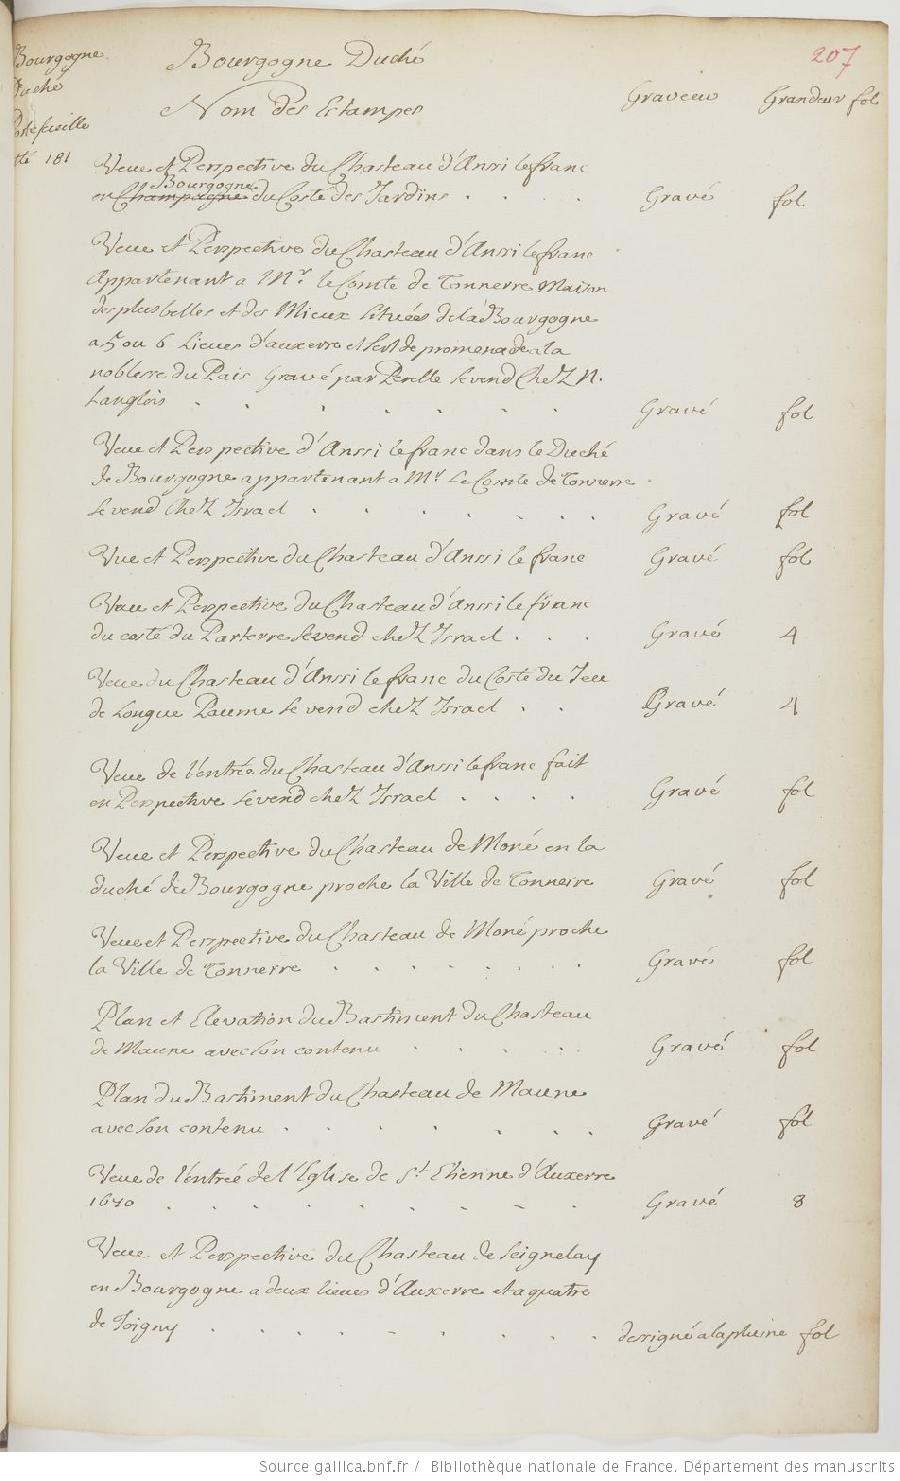 207
Bourgogne Duché
Bourgogne
Duché
Nom des Estampes Graveur Grandeur fol
Portefeuille
coté 181
Veue et Perspective du Chasteau d'Anssi le franc
Bourgogne
en Champagne du Costé des Jardins . . . . Gravé fol
Veue et Perspective du Chasteau d'Anssi le franc
Appartenant a Mr. le Comte de Tonnerre Maison
des plus belles et des Mieux Situées de la Bourgogne
a 5 ou 6 Lieues d'auxerre et sert de promenade a la
noblesse du Pais Gravé par Perelle se vend Chez N.
Langlois . . . . . . . Gravé fol
Veue et Perspective d'Anssi le franc dans le Duché
de Bourgogne appartenant a Mr. Le Comte de Tonnerre
se vend Chez Israel . . . . . . Gravé fol
Vue et Perspective du Chasteau d'Anssi le franc Gravé fol
Veue et Perspective du Chasteau d'Anssi le franc
du costé du Parterre se vend chez Israel . . . Gravé 4
Veue du Chasteau d'Anssi le franc du Costé du Jeu
de Longue Paume se vend chez Israel . . Gravé 4
Veue de l'entrée du Chasteau d'Anssi le franc fait
en Perspective se vend chez Israel . . . . Gravé fol
Veue et Perspective du Chasteau de Moné en la
duché de Bourgogne proche la Ville de Tonnerre Gravé fol
Veue et Perspective du Chasteau de Moné proche
la Ville de Tonnerre . . . . . . . Gravé fol
Plan et Elevation du Bastiment du Chasteau
de Maune avec son contenu . . . . . Gravé fol
Plan du Bastiment du Chasteau de Maune
avec son contenu . . . . . . . Gravé fol
Veue de l'entrée de l'Eglise de St. Etienne d'Auxerre
1640 . . . . . . . . . . Gravé 8
Veue et Perspective du Chasteau de Seignelay
en Bourgogne a deux lieues d'Auxerre et a quatre
de Joigny . . . . . . . . . dessigné a la pluine fol
Source gallica.bnf.fr / Bibliothèque nationale de France. Département des manuscrits